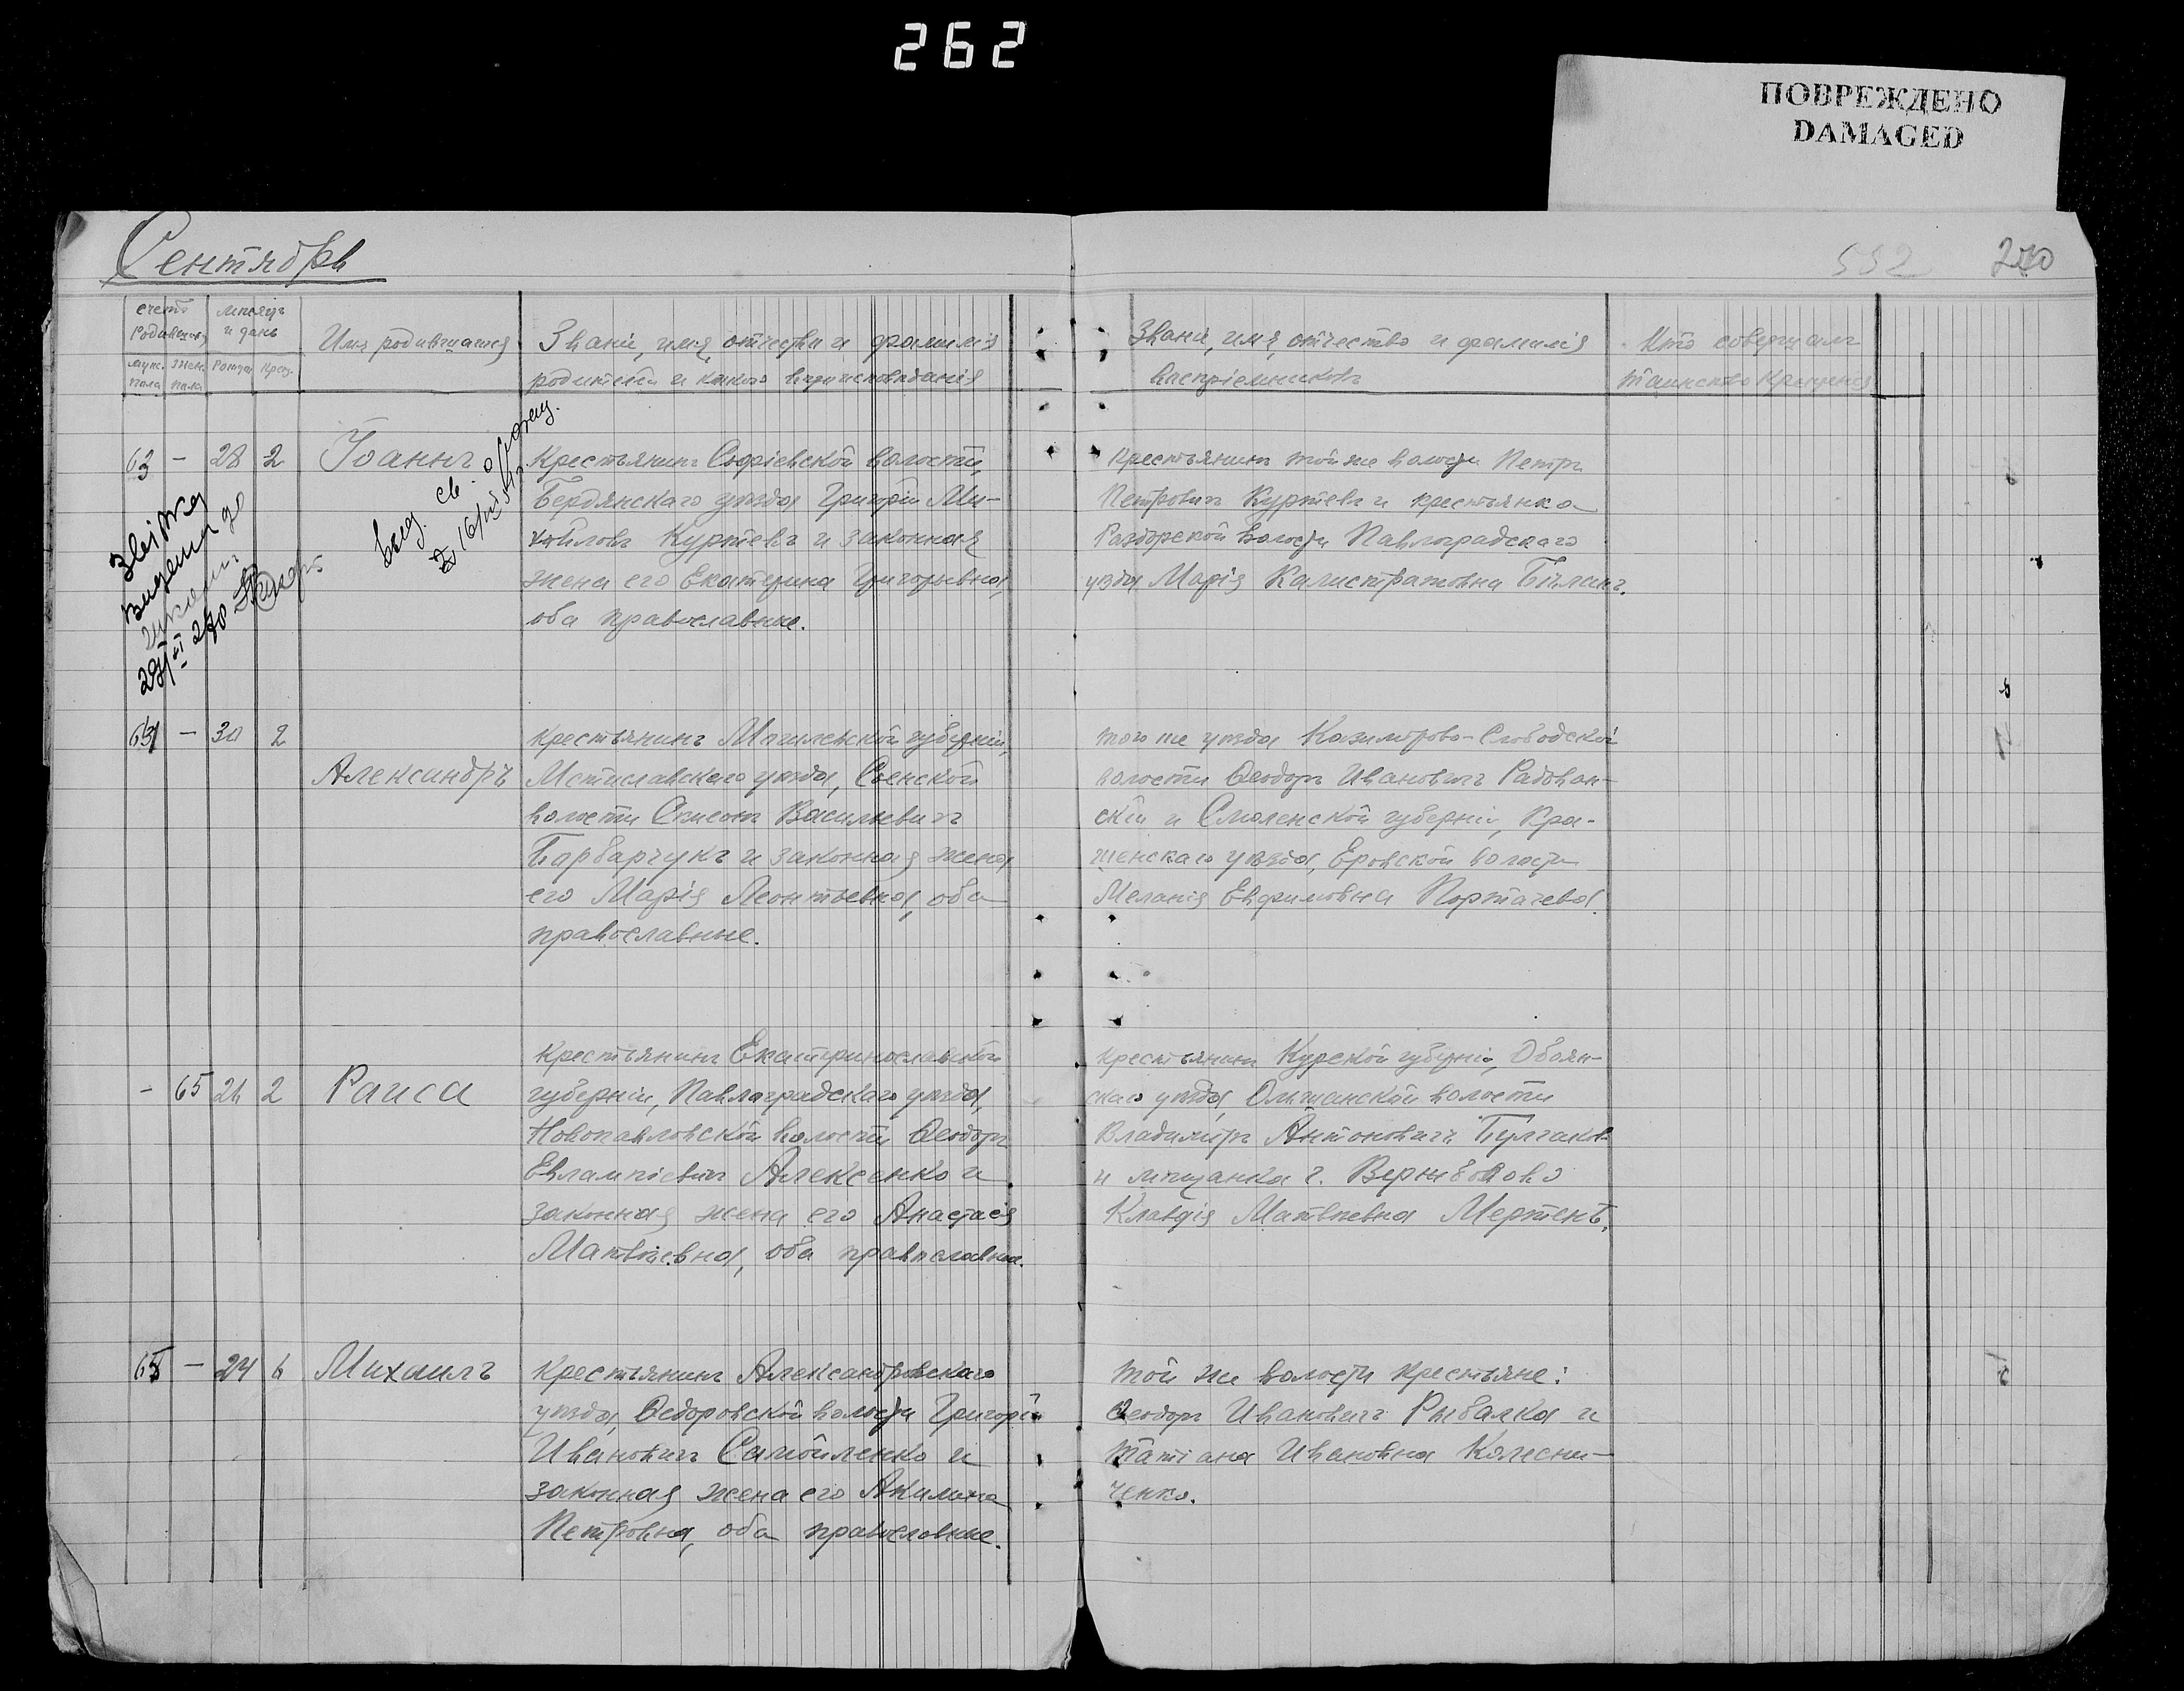 262
ПОВРЕЖДЕНО
DAMAGED
Сентябрь
552
270
счетъ родившихся
мѣсяцъ и день
муж. пола
жен. пола
Рожден
Крещ.
Имя родившагося
Званіе, имя, отчество и фамилія
родителей и какого вѣроисповѣданія
Званіе, имя, отчество и фамилія
воспріемниковъ
Кто совершалъ
таинство крещенія
63 - 28 2
Іоаннъ
Крестьянинъ Софіевской волости,
Бердянскаго уѣзда Григорій Ми-
хайловъ Куртевъ и законная
жена его Екатерина Григорьевна,
оба православные.
Крестьянинъ той же волости Петръ
Петровичъ Куртевъ и крестьянка
Раздорской волости Павлоградскаго
уѣзда Марія Калистратовна Біланъ.
выд. св. о рожд.
64 - 30 2
Александръ
Крестьянинъ Могилевской губерніи,
Мстиславскаго уѣзда, Соенской
волости Сысой Васильевичъ
Барбарчукъ и законная жена
его Марія Леонтьевна, оба
православные.
того же уѣзда Казимирово-Слободской
волости Ѳеодоръ Ивановичъ Радован-
скій и Смоленской губерніи, Кра-
шенскаго уѣзда, Еровской волости
Меланія Евфимовна Портачева.
- 65 21 2
Раиса
Крестьянинъ Екатеринославской
губерніи, Павлоградскаго уѣзда,
Новопавловской волости Ѳеодоръ
Евлампіевичъ Алексенко и
законная жена его Анастасія
Матвѣевна, оба православные.
Крестьянинъ Курской губерніи, Обоян-
скаго уѣзда, Ольшанской волости
Владиміръ Антоновичъ Булгаковъ
и мѣщанка г.
Клавдія Матвѣевна Мертенъ.
65 - 24 6
Михаилъ
Крестьянинъ Александровскаго
уѣзда, Ѳедоровской волости Григорій
Ивановичъ Самойленко и
законная жена его Акилина
Петровна, оба православные.
той же волости крестьяне:
Ѳеодоръ Ивановичъ Рыбалка и
Татіана Ивановна Колесни-
ченко.